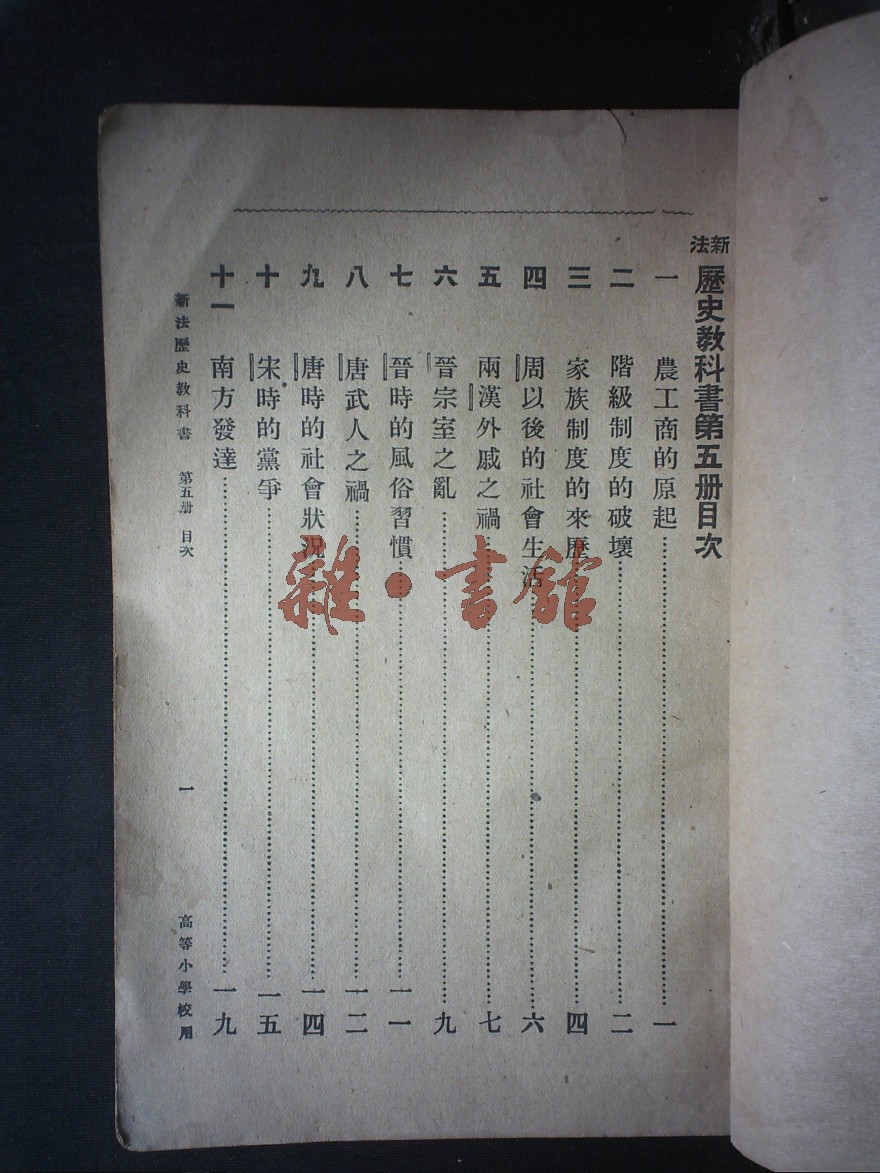 新法歷史教科書第五册目次
一 農工商的原起⋯⋯一
二 階級制度的破壞⋯⋯二
三 家族制度的來歷⋯⋯四
四 周以後的社會生活⋯⋯六
五 兩漢外戚之禍⋯⋯七
六 晉宗室之亂⋯⋯九
七 晉時的風俗習慣⋯⋯一一
八 唐武人之禍⋯⋯一二
九 唐時的社會狀況⋯⋯一四
十 宋時的黨爭⋯⋯一五
十一 南方發達⋯⋯一九
新法歷史教科書 第五册 目次 一 高等小學校用
雜·書館